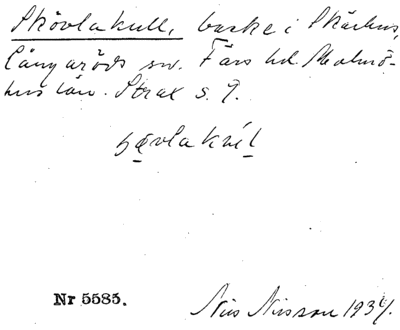 Skövlakull, backe i Skårhus,
Långaröds sn. Färs hd. Malmö-
hus län. Strax s. 9.
Nr 5585.
Nils Nilsson 1934.